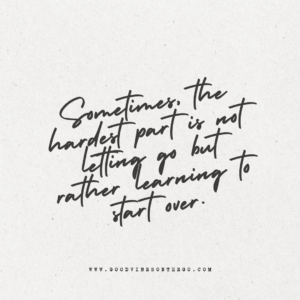 Sometimes, the
hardest part is not
letting go but
rather learning to
start over.
WWW.GOODVIBESONTERGO.COM